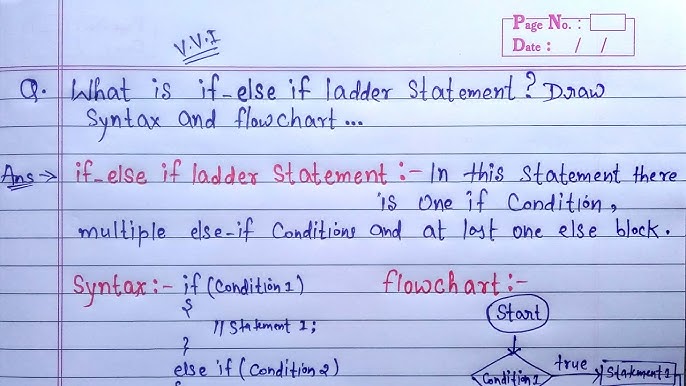 V.V.I
Page No. :
Date : / /
Q. What is if-else if ladder Statement? Draw
Syntax and flowchart...
Ans → if-else if ladder Statement :- In this Statement there
is One if Condition,
multiple else-if Conditions and at last one else block.
Syntax:- if (Condition 1)
{
// Statement 1;
}
else if (Condition 2)
{
flowchart :-
Start
Condition 1
true
Statement 1